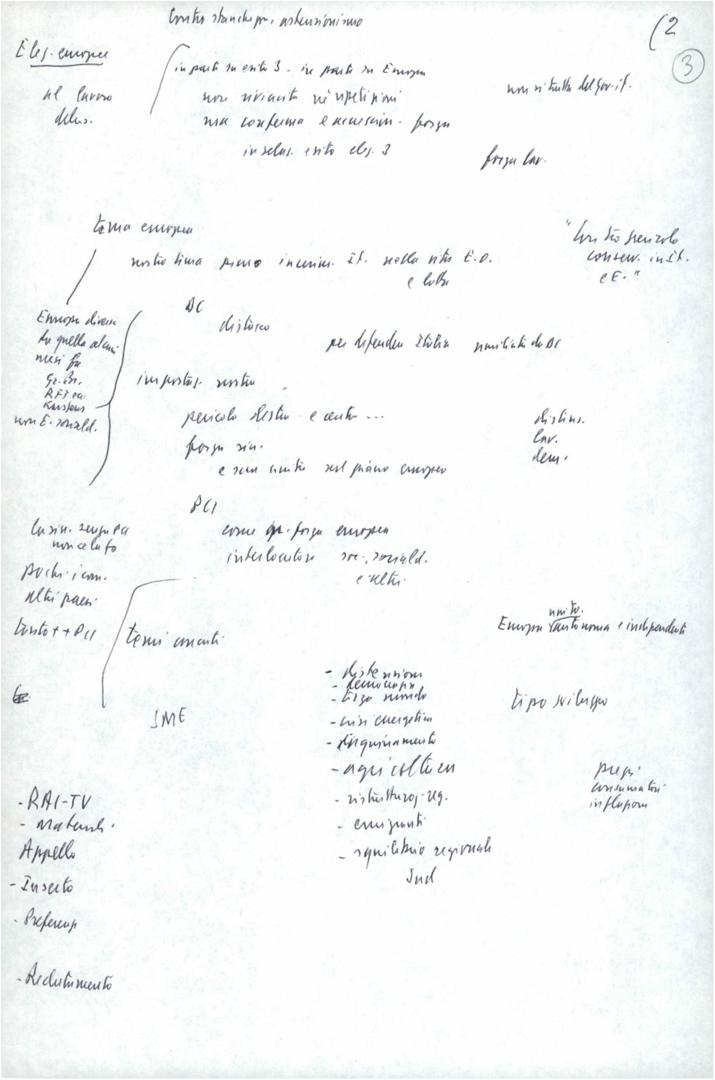 Contro stanchezza, astensionismo
(2
3
Elez. europee
al lavoro
in parte su esito 3 - in parte su Europa
non si tratta del Gov. it.
non rivincita né ripetizioni
ma conferma e accresc. forza
in relaz. esito elez. 3
forza lav.
tema europeo
"Contro pericolo
conserv. in It.
e E."
nostra linea piano It. nella vita E.O.
e lotta
DC
Europa diversa
da quella alcuni
mesi fa
Gr. Br.
RFT
non E. sociald.
distacco
per difendere Italia umiliata da DC
impostaz. nostra
pericolo destra e centro ...
forza sin.
e sua unità sul piano europeo
distins.
lav.
dem.
PCI
La sin. senza PCI
non ce la fa
come gr. forza europea
interlocutore soc., sociald.
e altri
pochi com.
altri paesi
tanto + + PCI
temi concreti
unita.
Europa autonoma e indipendente
SME
- distensione
- democrazia
- terzo mondo
- crisi energetica
- inquinamento
- agricoltura
- ristrutturaz. reg.
- emigranti
- squilibrio regionale
Sud
tipo sviluppo
prezzi
consumatori
inflazione
- RAI-TV
- Material.
Appello
- Inserto
- Preferenze
- Reclutamento